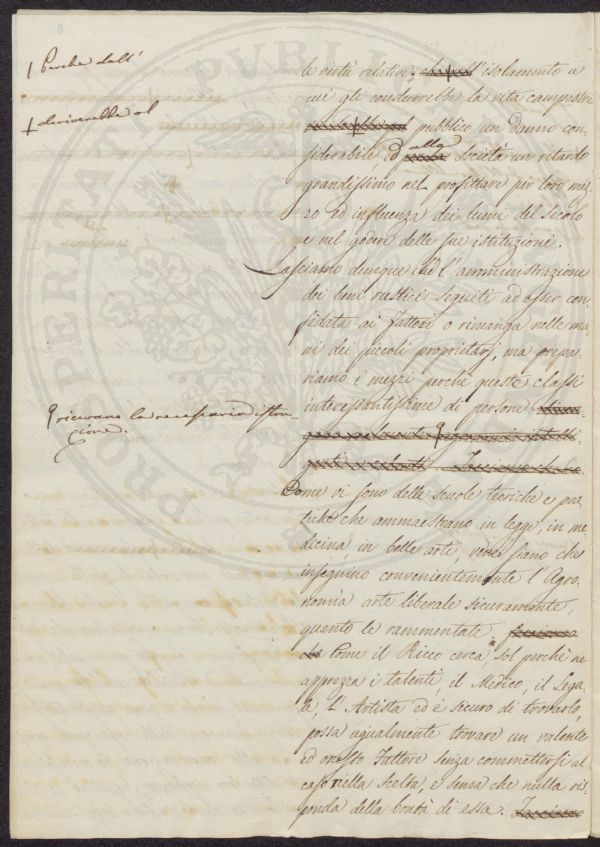 Perche dall'
deriverebbe al
le virtù relative, all'isolamento a
cui gli condurrebbe la vita campestre
pubblico un danno con-
siderabile ed alla società un ritardo
grandissimo nel profittare per loro mez-
zo ed influenza dei lumi del secolo
e nel godere delle sue istituzioni.
Lasciamo dunque che l'amministrazione
dei beni rustici seguiti ad esser con-
fidata ai Fattori o rimanga nelle ma-
ni dei piccoli proprietarj, ma prepa-
riamo i mezzi perchè queste classi
interessantissime di persone
ricevano la necessaria istru-
zione.
Come vi sono delle scuole teoriche e pra-
tiche che ammaestrano in legge, in me-
dicina, in belle arti, siano che
inseguino convenientemente l'Agro-
nomia arte liberale sicuramente,
quanto le rammentate.
Come il Ricco cerca, sol perchè ne
apprezza i talenti, il Medico, il Lega-
le, l'Artista ed è sicuro di trovarlo,
possa egualmente trovare un valente
ed onesto Fattore senza commettersi al
caso nella scelta, e senza che nulla ris-
ponda della bontà di essa.
PROSPERITATI PVBLI